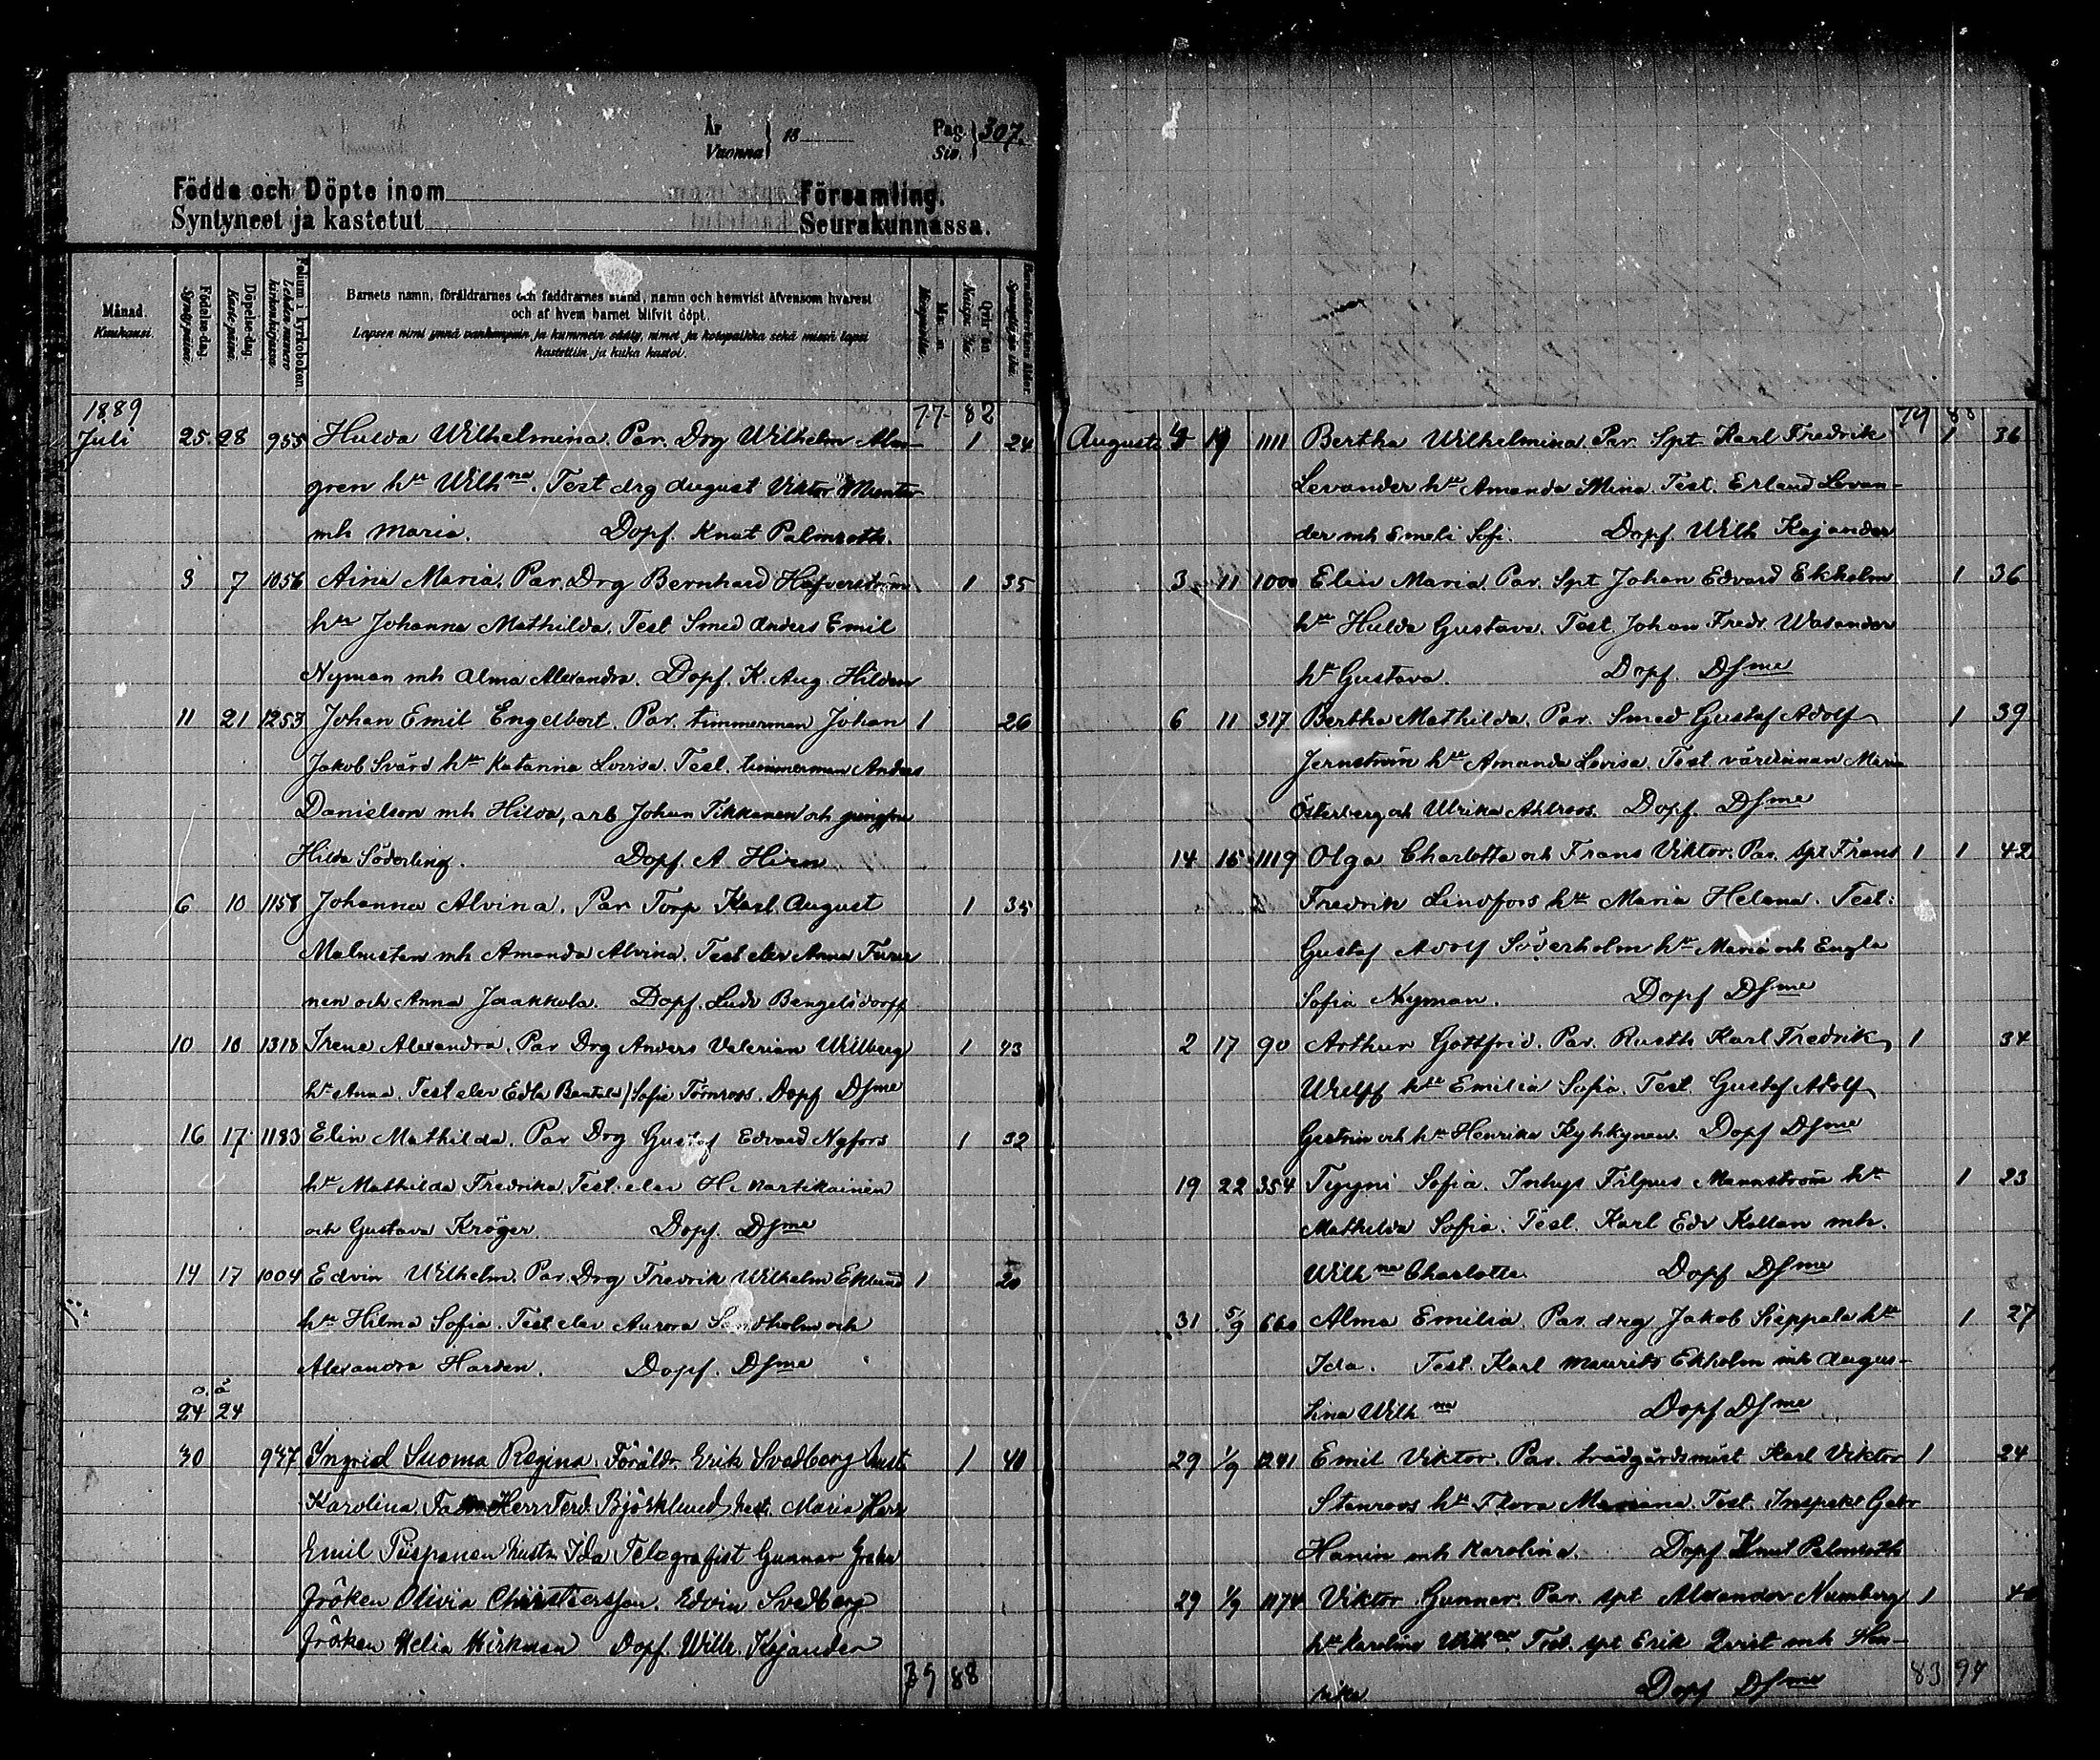 År
Vuonna } 18
Pag. Siv. } 307.
Födda och Döpte inom Församling.
Syntyneet ja kastetut Seurakunnassa.
Månad. Kuukausi.
Födelse-dag. Syntypäivä.
Döpelse-dag. Kastepäivä.
Folium i kyrkoboken. Lehden numero kirkonkirjassa.
Barnets namn, föräldrarnes och faddrarnes stånd, namn och hemvist äfvensom hvarest
och af hvem barnet blifvit döpt.
Lapsen nimi ynnä vanhempain ja kummein sääty, nimet ja kotopaikka sekä missä lapsi
kastettiin ja kuka kastoi.
Mk. n. Miespuolia.
Qvk. ön Naisp. lia.
1889 77 82
Juli 25 28 955 Hulda Wilhelmina. Par. Drg Wilhelm Alm- 1 24
gren hu Wilhna. Test drg August Viktor Munter
mh Maria. Dopf. Knut Palmroth.
3 7 1056 Aina Maria. Par. Drg Bernhard Hafverström 1 35
hu Johanna Mathilda. Test Smed Anders Emil
Nyman mh Alma Alexandra. Dopf. K. Aug. Hildén
11 21 1253 Johan Emil Engelbert. Par. timmerman Johan 1 26
Jakob Svärd hu Katarina Lovisa. Test. timmerman Anders
Danielson mh Hilda, arb Johan Tikkanen och jungfru
Hilda Söderling. Dopf. A. Hirn
6 10 1158 Johanna Alvina. Par Torp Karl August 1 35
Malmsten mh Amanda Alvina. Test elev Anna Turu
nen och Anna Jaakkola. Dopf. Ludv Bengelsdorff
10 10 1313 Irene Alexandra. Par Drg Anders Valerian Willberg 1 43
hu Anna. Test elev Edla Sofia Törnroos. Dopf Dsme
16 17 1183 Elin Mathilda. Par Drg Gustaf Edvard Nyfors 1 32
hu Mathilda Fredrika. Test. elev H. Martikainen
och Gustava Kröger. Dopf. Dsme
14 17 1004 Edvin Wilhelm. Par. Drg Fredrik Wilhelm Eklund 1 20
hu Hilma Sofia. Test elev Aurora Sandholm och
Alexandra Harden. Dopf. Dsme
24 24
30 937 Ingrid Suoma Regina. Föräldr. Erik Svedberg hust 1 40
Karolina. Herr Ferd. Björklund, hust. Maria Herr
Emil Piispanen hustr Ida Telegrafist Gunnar
Fröken Olivia Christiersson. Edvin Svedberg
Fröken Helia Hirkman Dopf. Wilh. Kajander
79 88
79 88
Augusti 11 1111 Bertha Wilhelmina. Par. Spt Karl Fredrik 1 36
Levander hu Amanda Mina. Test. Erland Levan-
der mh Emeli Sofi. Dopf. Wilh Kajander
3 11 1000 Elin Maria. Par. Spt Johan Edvard Ekholm 1 36
hu Hulda Gustava. Test. Johan Fredr. Wasander
hu Gustava. Dopf. Dsme
6 11 317 Bertha Mathilda. Par. Smed Gustaf Adolf 1 39
Jernström hu Amanda Lovisa. Test. värdinnan Maria
Österberg och Ulrika Ahlroos. Dopf. Dsme
14 15 1119 Olga Charlotta och Frans Viktor. Par. spt Frans 1 1 42
Fredrik Lindfors hu Maria Helena. Test.
Gustaf Adolf Söderholm hu Maria och Engla
Sofia Nyman. Dopf Dsme
2 17 90 Arthur Gottfrid. Par. Rusth Karl Fredrik 1 34
Wulff hu Emilia Sofia. Test. Gustaf Adolf
och hu Henrika Kyhkynen. Dopf Dsme
19 22 354 Tyyni Sofia. Inhys Filpus Mannström hu 1 23
Mathilda Sofia. Test. Karl Edv Kallan mh.
Wilhna Charlotta. Dopf Dsme
31 5/9 660 Alma Emilia. Par. drg Jakob Seppälä hu 1 27
Ida. Test. Karl Maurits Ekholm mh Augus-
tina Wilhna Dopf Dsme
29 1/9 1241 Emil Viktor. Par. trädgårdsmäst Karl Viktor 1 24
Stenroos hu Thora Mariana. Test. Inspekt Gabr
Hanin mh Karolina. Dopf Knut Palmroth
29 1/9 1174 Viktor Gunnar. Par. spt Alexander Numberg 1
hu Karolina Wilhna. Test. spt Erik Qvist mh Hen-
rika Dopf Dsme
83 94